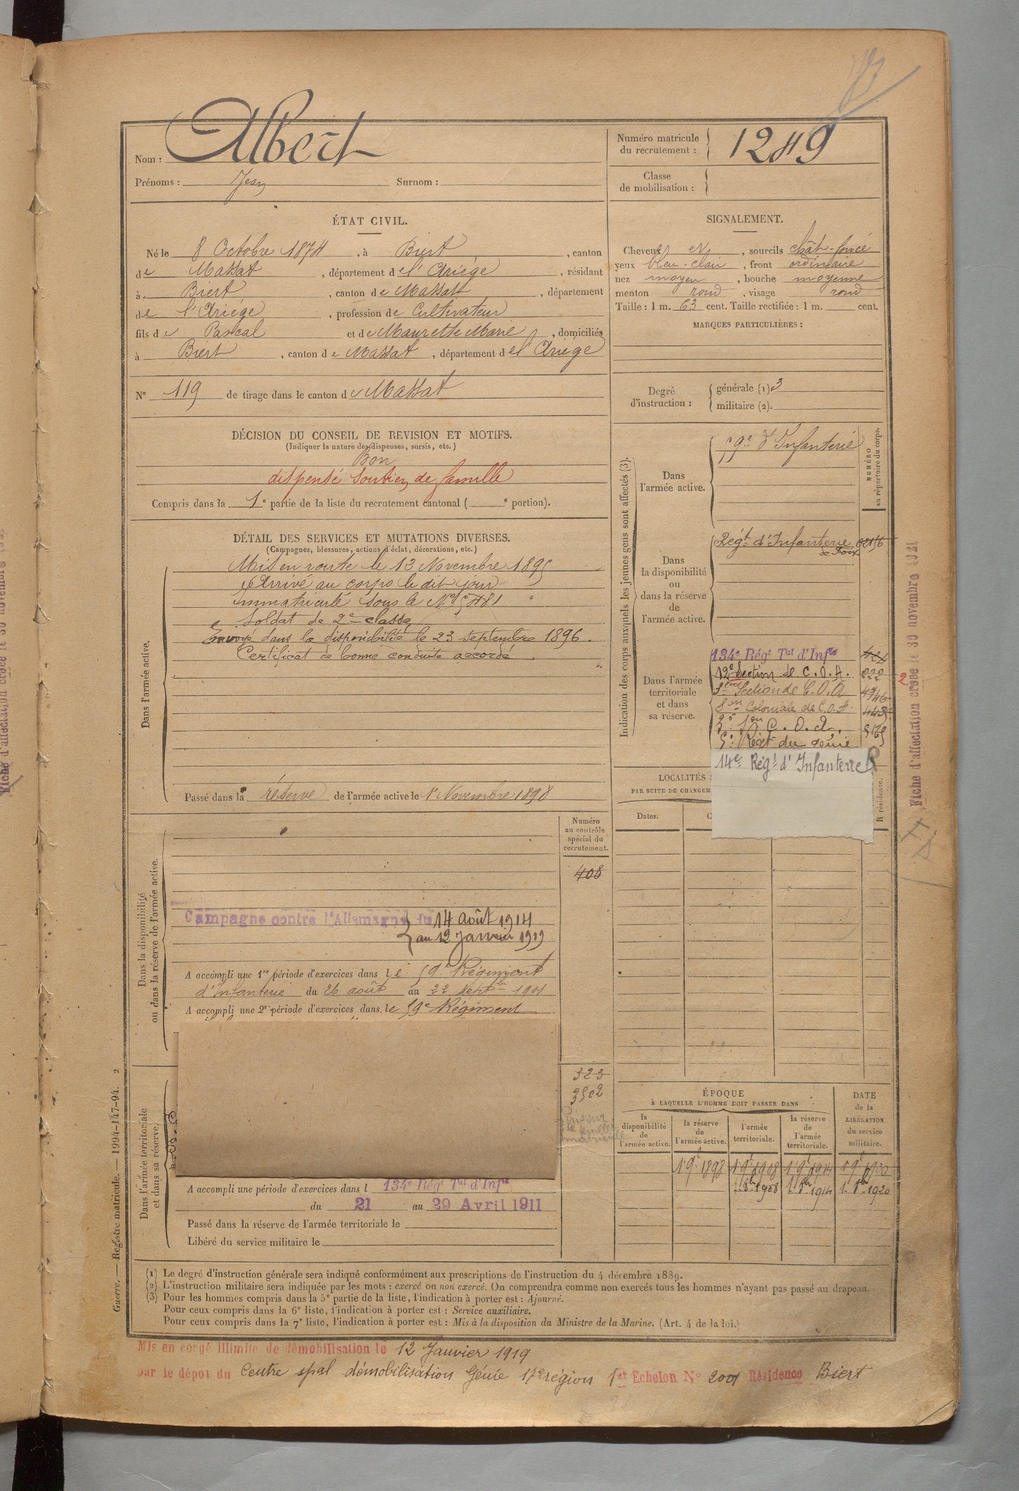 Nom : Albert
Prénoms : Jean Surnom :
Numéro matricule du recrutement : 1249
Classe de mobilisation :
ÉTAT CIVIL.
Né le 8 Octobre 1874, à Biert, canton
de Massat, département de l'Ariége, résidant
à Biert, canton de Massat, département
de l'Ariége, profession de Cultivateur
fils de Pascal et de Maurette Marie, domiciliés
à Biert, canton de Massat, département de l'Ariége
N° 119 de tirage dans le canton de Massat
SIGNALEMENT.
Cheveux, sourcils chât-foncé
yeux bleu-clair, front ordinaire
nez moyen, bouche moyenne
menton rond, visage rond
Taille : 1 m. 63 cent. Taille rectifiée : 1 m. cent.
MARQUES PARTICULIÈRES :
Degré d'instruction : générale (1) 3
militaire (2).
DÉCISION DU CONSEIL DE REVISION ET MOTIFS.
(Indiquer la nature des dispenses, sursis, etc.)
Bon
dispensé soutien de famille
Compris dans la 1e partie de la liste du recrutement cantonal ( e portion).
DÉTAIL DES SERVICES ET MUTATIONS DIVERSES.
(Campagnes, blessures, actions d'éclat, décorations, etc.)
Dans l'armée active.
Mis en route le 13 Novembre 1895
Arrivé au corps le dit jour
immatriculé sous le N°
Soldat de 2e classe
Envoyé dans la disponibilité le 23 septembre 1896.
Certificat de bonne conduite accordé
Passé dans la réserve de l'armée active le 1er Novembre 1898
Indication des corps auxquels les jeunes gens sont affectés (3).
NUMÉRO au répertoire du corps.
Dans l'armée active.
59e d'Infanterie
Dans la disponibilité ou dans la réserve de l'armée active.
Régt d'Infanterie de Foix
Dans l'armée territoriale et dans sa réserve.
134e Régt Tal d'Infie
12e Section de C.O.A. 222
Section de C.O.A
Coloniale de C.O.A
C.O.A.
Régt du génie
14e Régt d'Infanterie
LOCALITÉS
PAR SUITE DE CHANGEM
Dates.
R résidence.
Fiche d'affectation créée le 30 novembre 1921
Numéro au contrôle spécial du recrutement.
408
Dans la disponibilité ou dans la réserve de l'armée active.
Campagne contre l'Allemagne du 14 Août 1914
au 12 Janvier 1919
A accompli une 1re période d'exercices dans le 59e Régiment
d'infanterie du 26 août au 22 septbre 1901
A accompli une 2e période d'exercices dans le 59e Régiment
323
3502
Dans l'armée territoriale et dans sa réserve.
A accompli une période d'exercices dans l 134e Régt Tal d'Infie
du 21 au 29 Avril 1911
Passé dans la réserve de l'armée territoriale le
Libéré du service militaire le
ÉPOQUE
À LAQUELLE L'HOMME DOIT PASSER DANS
la disponibilité de l'armée active.
la réserve de l'armée active.
l'armée territoriale.
la réserve de l'armée territoriale.
DATE de la LIBÉRATION du service militaire.
1 9e 1898 1 9e 1908 1 9e 1914
1908 1914 1920
(1) Le degré d'instruction générale sera indiqué conformément aux prescriptions de l'instruction du 4 décembre 1889.
(2) L'instruction militaire sera indiquée par les mots : exercé ou non exercé. On comprendra comme non exercés tous les hommes n'ayant pas passé au drapeau.
(3) Pour les hommes compris dans la 5e partie de la liste, l'indication à porter est : Ajourné.
Pour ceux compris dans la 6e liste, l'indication à porter est : Service auxiliaire.
Pour ceux compris dans la 7e liste, l'indication à porter est : Mis à la disposition du Ministre de la Marine. (Art. 4 de la loi.)
Mis en congé illimité de démobilisation le 12 Janvier 1919
par le dépôt du Centre spal démobilisation Génie 17e région 1er Echelon N° 2001 Résidence Biert
Guerre. — Registre matricule. — 1994-147-94. 2